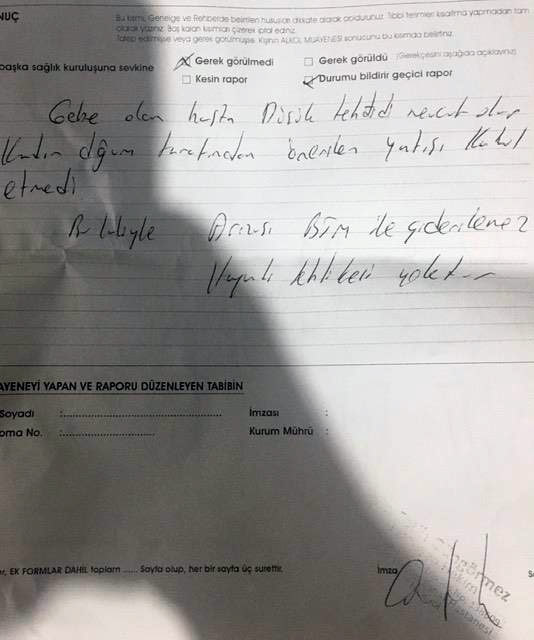 NUÇ
Bu kısmı, Genelge ve Rehberde belirtilen hususları dikkate alarak doldurunuz. Tıbbi terimleri kısaltma yapmadan tam
olarak yazınız. Boş kalan kısımları çizerek iptal ediniz.
Talep edilmişse veya gerek görülmüşse, Kişinin ALKOL MUAYENESİ sonucunu bu kısımda belirtiniz.
başka sağlık kuruluşuna sevkine Gerek görülmedi Gerek görüldü (Gerekçesini aşağıda açıklayınız)
Kesin rapor Durumu bildirir geçici rapor
Gebe olan hasta Düşük tehdidi mevcut olup
Kadın doğum tarafından önerilen yatışı Kabul
etmedi
Bu haliyle Arızası BTM ile giderilemez
Hayati tehlikesi yoktur
AYENEYİ YAPAN VE RAPORU DÜZENLEYEN TABİBİN
Soyadı : İmzası :
oma No. : Kurum Mührü :
r, EK FORMLAR DAHİL toplam ...... Sayfa olup, her bir sayfa üç surettir. İmza